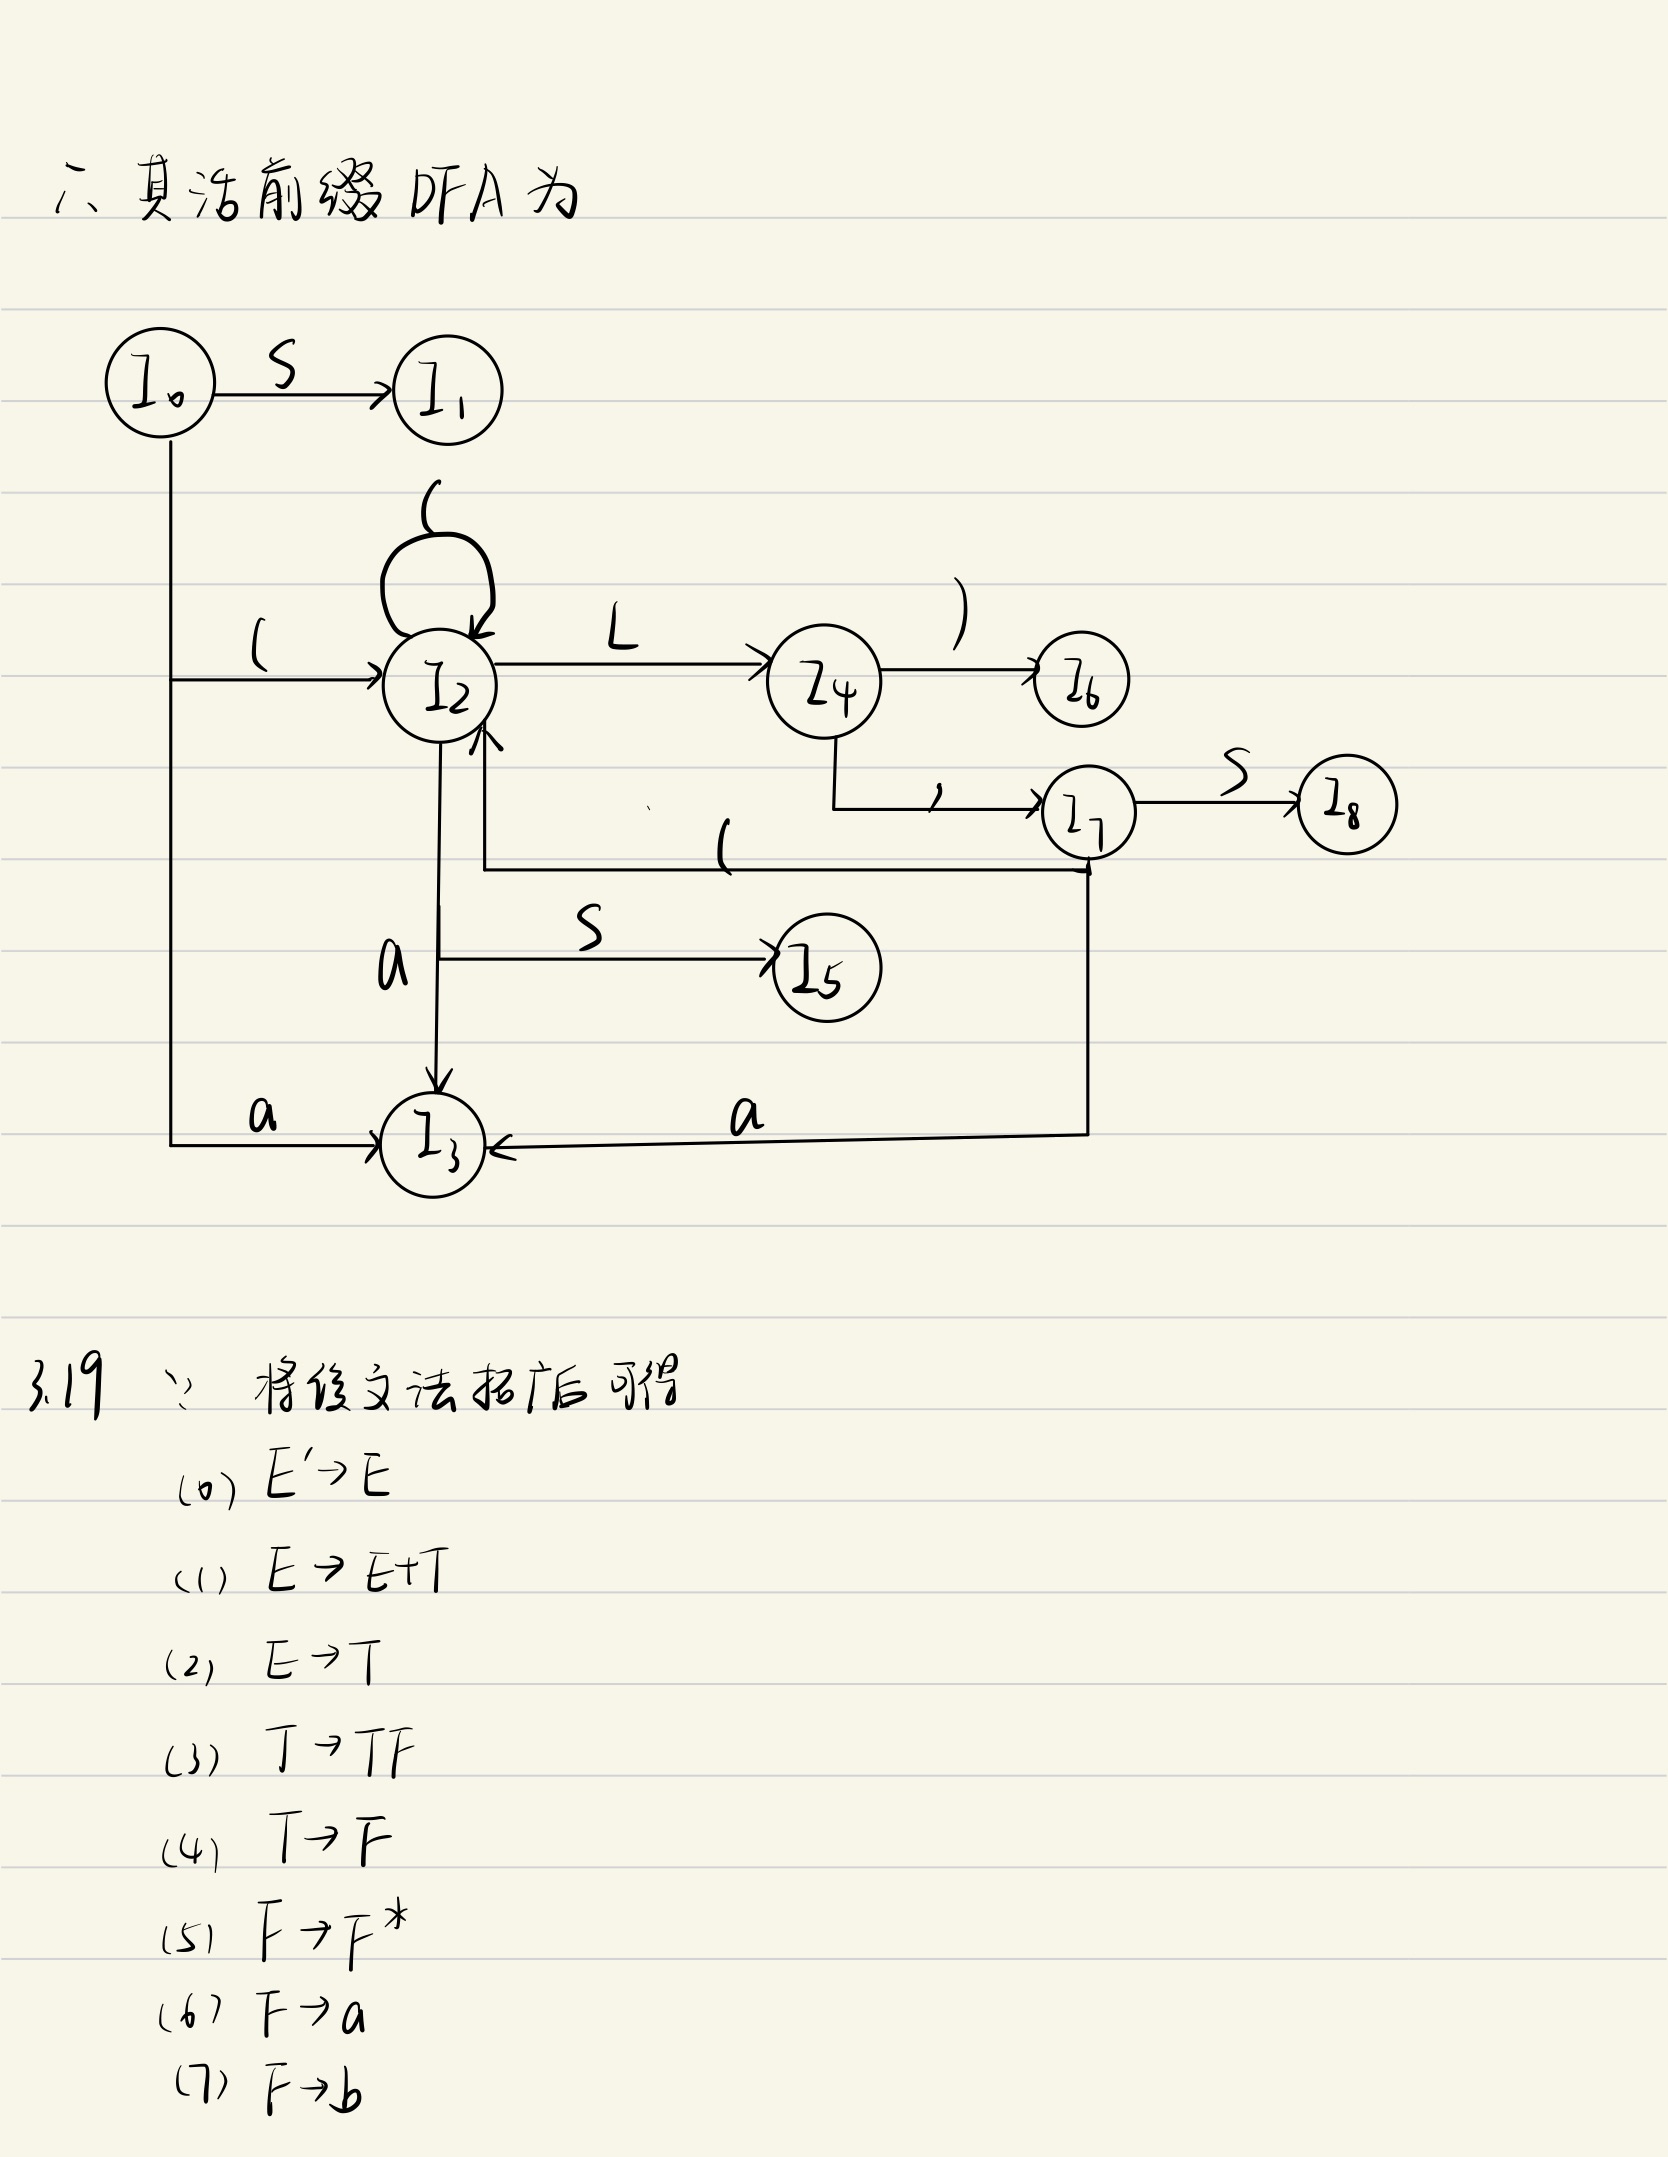 ∴ 其活前缀 DFA 为
I₀ S I₁
(
( I₂ L I₄ ) I₆
, I₇ S I₈
(
a S I₅
a I₃ a
3.19 ∵ 将该文法拓广后可得
(0) E′→E
(1) E→E+T
(2) E→T
(3) T→TF
(4) T→F
(5) F→F*
(6) F→a
(7) F→b